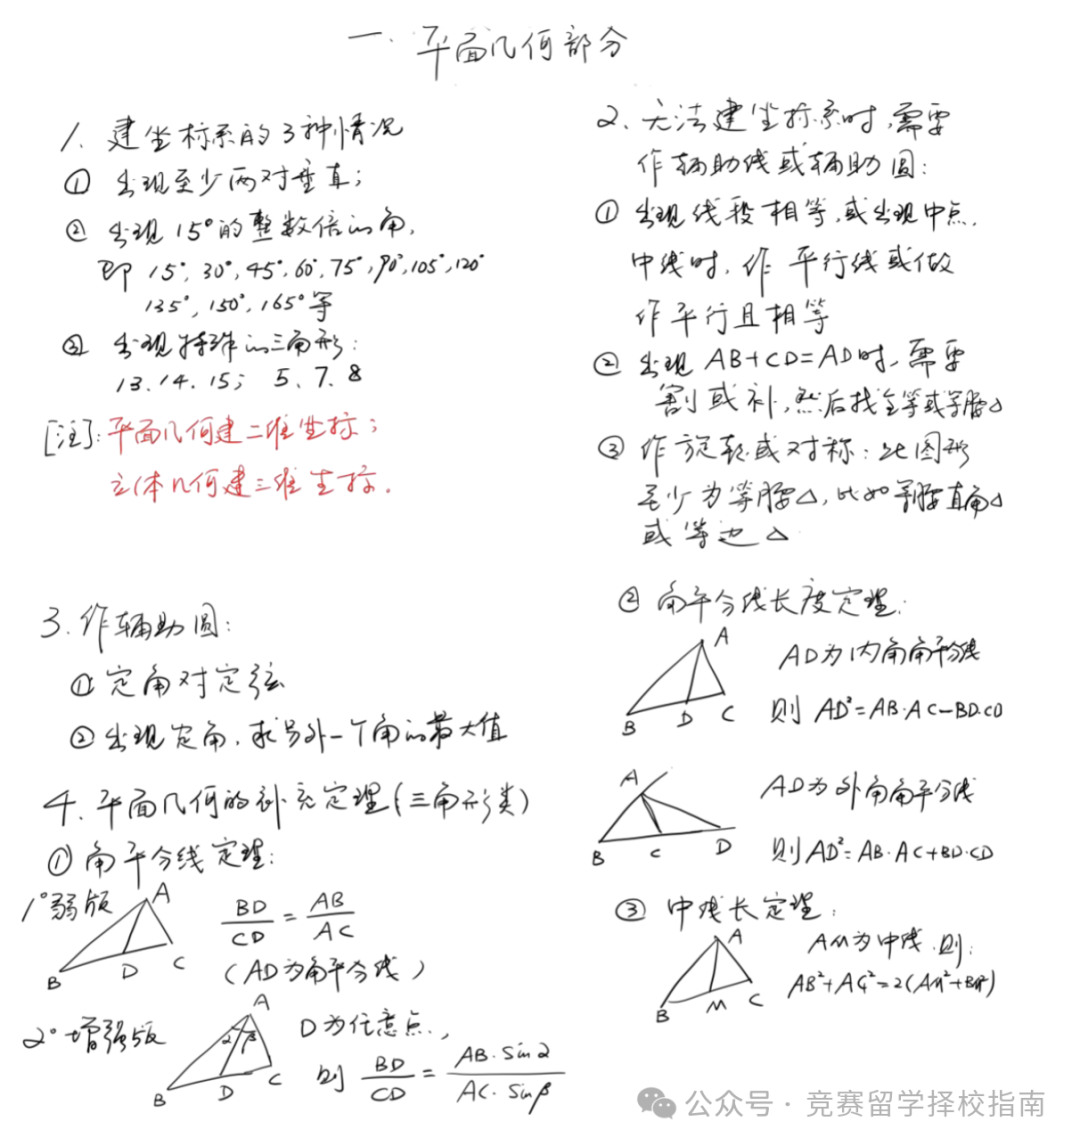 一. 平面几何部分
1. 建坐标系的3种情况
① 出现至少两对垂直;
② 出现15°的整数倍的角,
即 15°, 30°, 45°, 60°, 75°, 90°, 105°, 120°
135°, 150°, 165°等
③ 出现特殊的三角形:
13.14.15; 5、7、8
[注]: 平面几何建二维坐标;
立体几何建三维坐标.
2. 无法建坐标系时,需要
作辅助线或辅助圆:
① 出现线段相等,或出现中点.
中线时, 作 平行线或做
作平行且相等
② 出现 AB+CD=AD时, 需要
割或补,然后找全等或等腰△
③ 作旋转或对称: 此图形
至少为等腰△, 比如等腰直角△
或等边△
3. 作辅助圆:
① 定角对定弦
② 出现定角, 求另外一个角的最大值
4. 平面几何的补充定理(三角形类)
① 角平分线定理:
1°弱版
A
B D C
BD/CD = AB/AC
(AD为角平分线)
2°增强版
A
α β
B D C
D为任意点,
则 BD/CD = AB·sinα/AC·sinβ
② 角平分线长度定理:
A
B D C
AD为内角角平分线
则 AD²=AB·AC-BD·CD
A
B C D
AD为外角角平分线
则AD²=AB·AC+BD·CD
③ 中线长定理:
A
B M C
AM为中线,则:
AB²+AC²=2(AM²+BM²)
公众号 · 竞赛留学择校指南